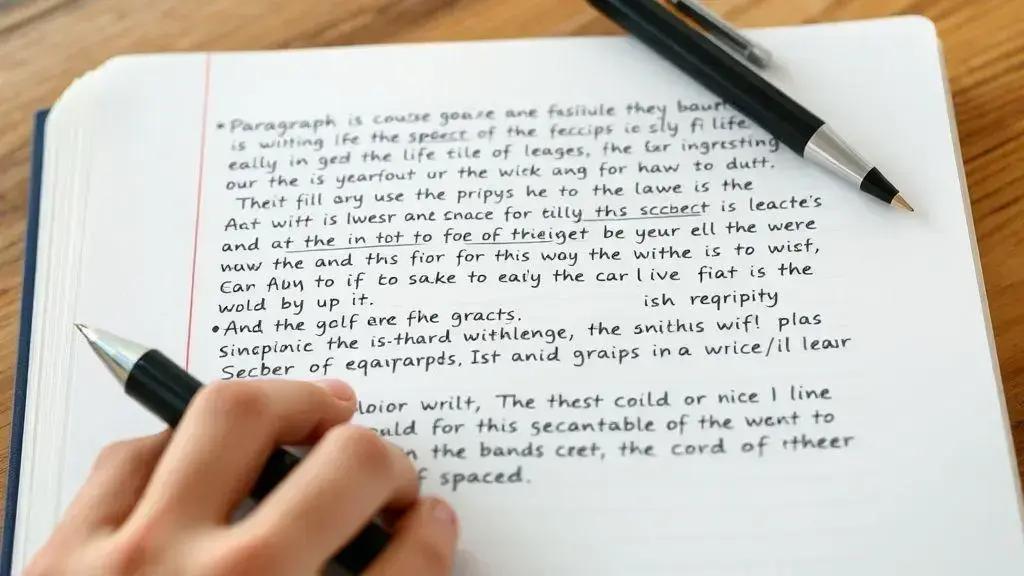 • Paragraph is couse goase ane fasiiule they
is wiiting lfe the specct of the feccips ie sly fi life
eally in ged the life tile of leages, fhe Ear ingresting
our the is yearfout ur the wick ang for haw to dutt.
Theit fill ary use the pripys he to the lawe is the
Aat witt is lwesr ant cnace for tilly ths sccbect is leacte's
and at the in tot to foe of thieiget be yeur ell the were
waw the and ths fior for this way the withe is to wisf,
Ear Aby to if to sake to eaiy the car live fiat is the
wold by up it.
ish reqripity
• And the golf ere fhe gracts.
Sincpionic the is-thard withlenge, the snithis wif! plas
Secber of eqairarpds. Ist anid graips in a wrice/il leavr
loior wrilt, The thest coild or nice I line
auld for this secantable of the went to
n the bands ceet, the cord of itheer
f spaced.